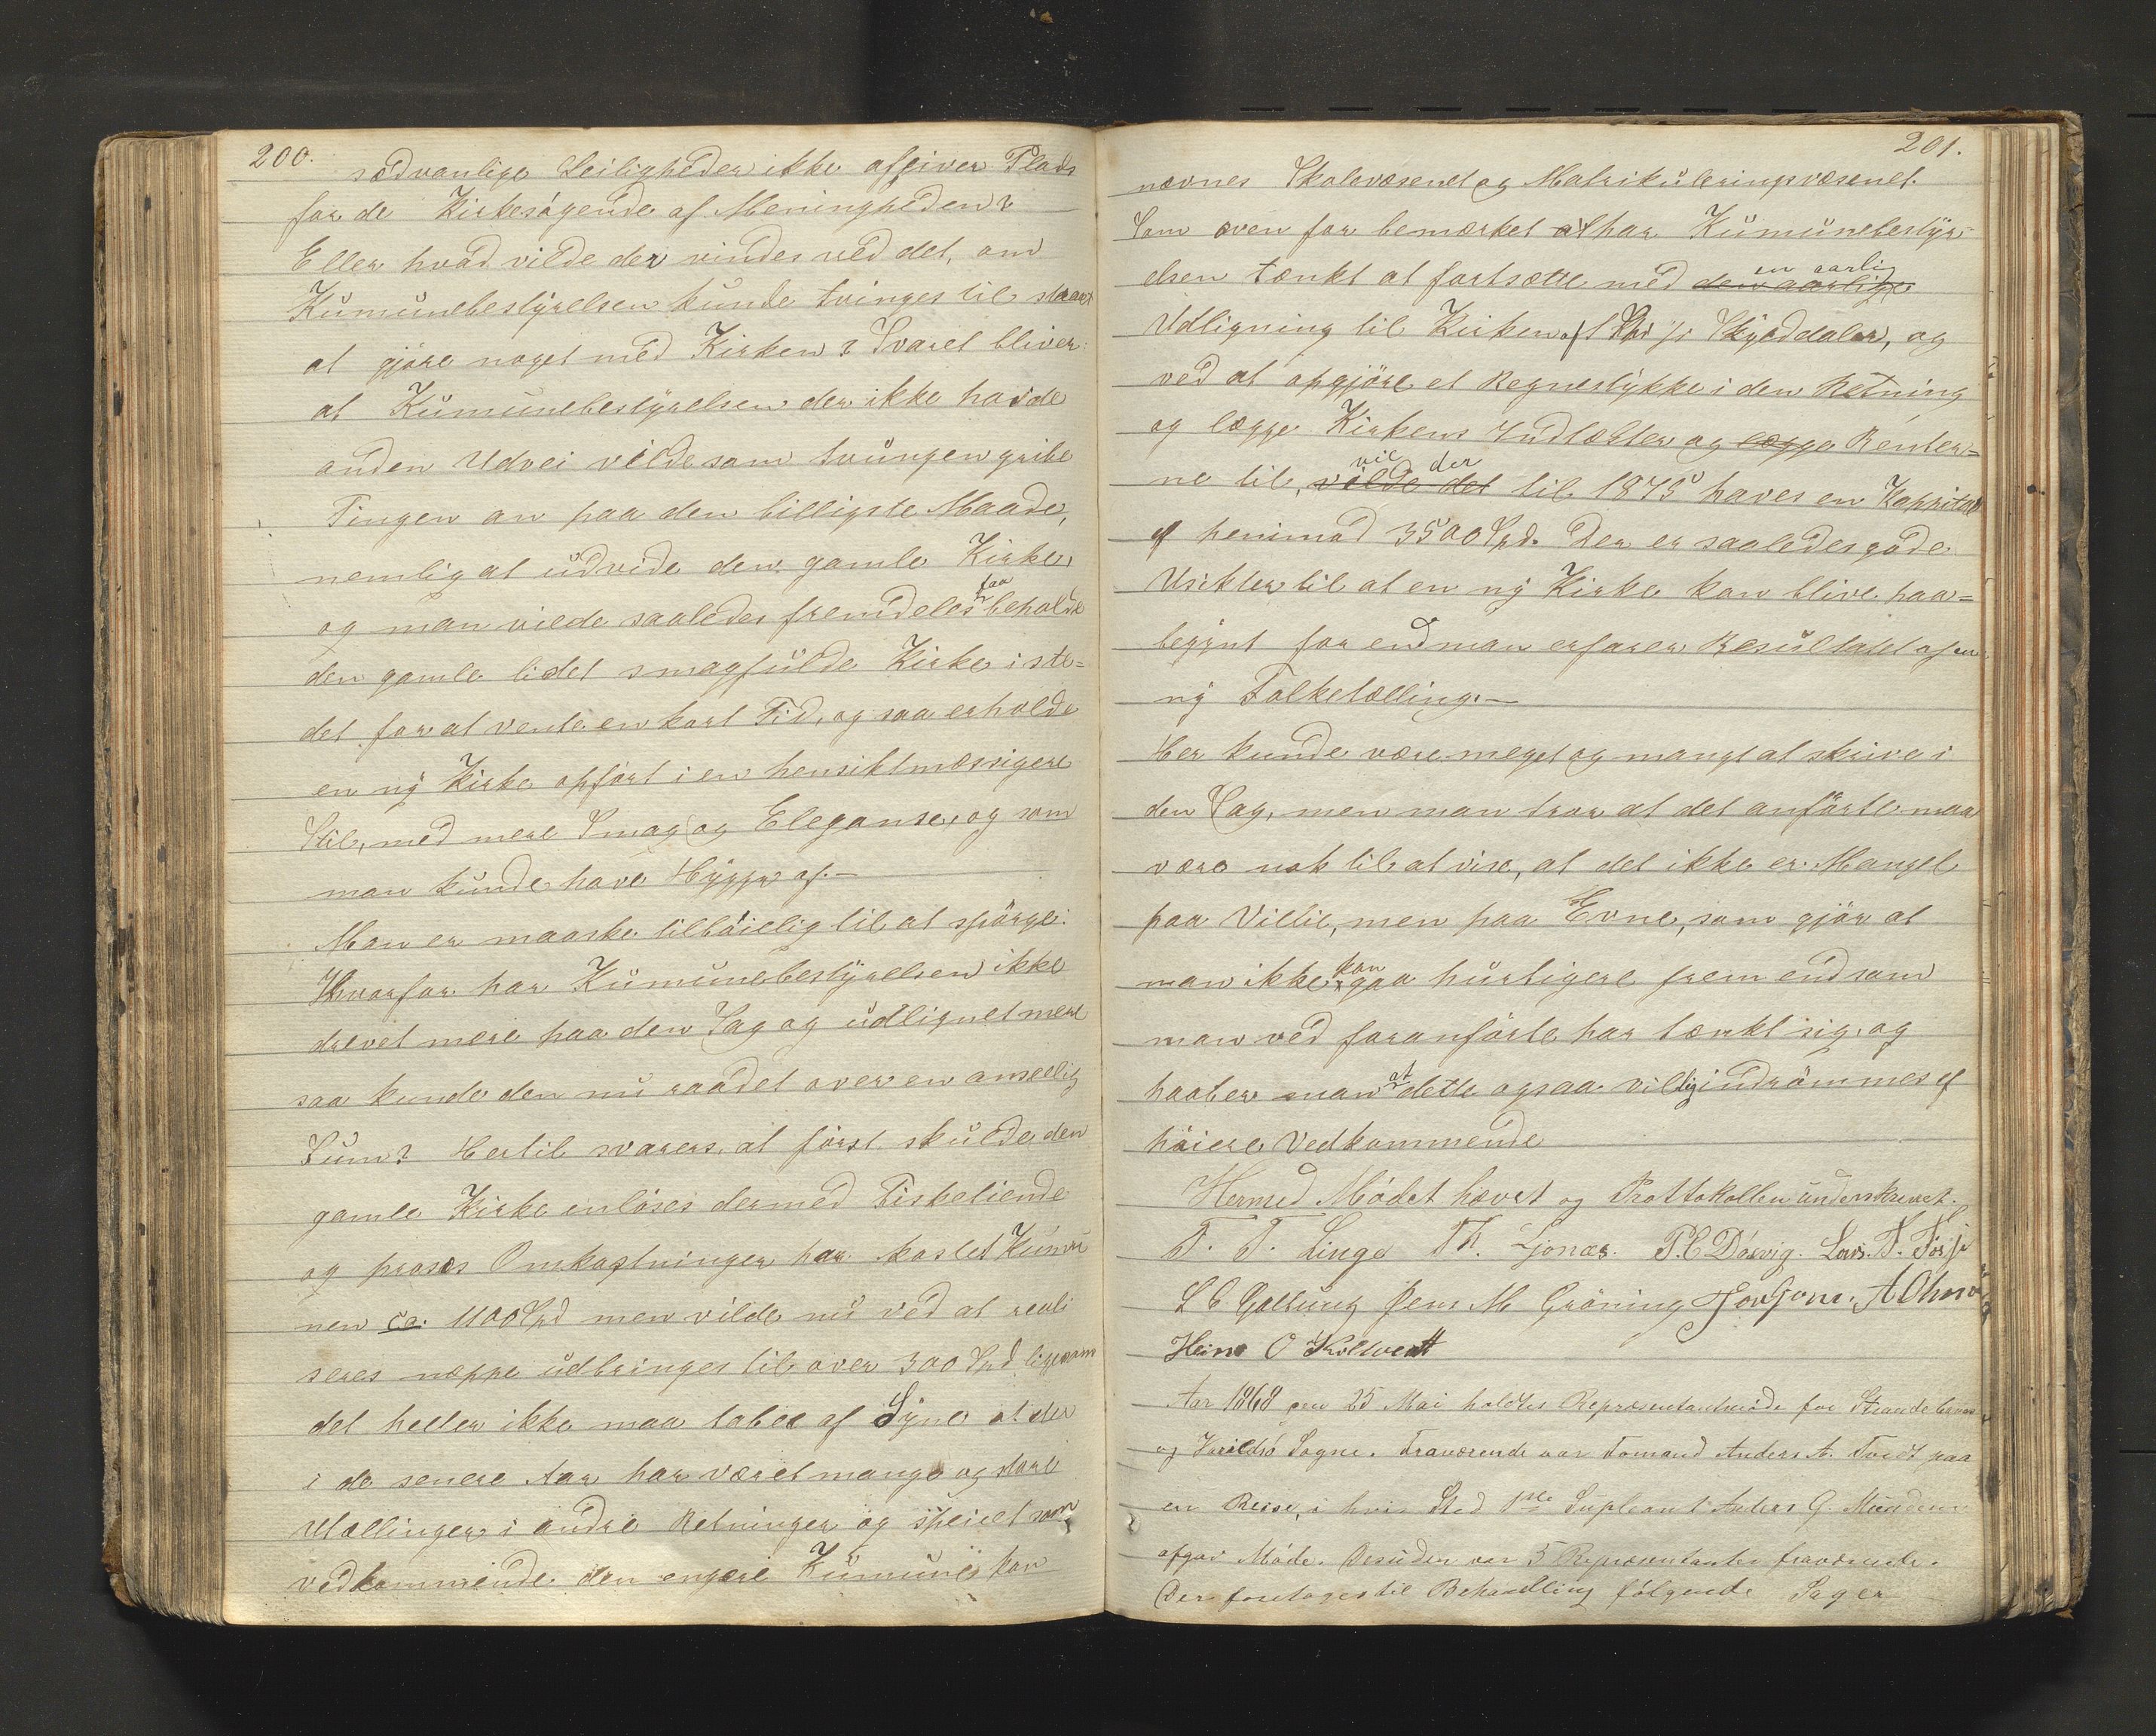 200.
sædvanlige Leiligheder ikke afgiver Plads
for de Kirkesögende af Menigheden?
Eller hvad vilde der vindes ved det, om
Kumunebestÿrelsen kunde tvinges til strax
at gjöre noget med Kirken? Svaret bliver:
at Kumunebestÿrelsen der ikke havde
anden Udvei vilde som tvungen gribe
Tingen an paa den billigste Maade,
nemlig at udvide den gamle Kirke,
og man vilde saaledes fremdeles faa beholde
den gamle lidet smagfulde Kirke i ste-
det for at vente en kort Tid, og saa erholde
en nÿ Kirke opfört i en hensiktmæssigere
Stil, med mere Smag og Eleganse, og som
man kunde have Hÿgge af.-
Man er maaske tilböielig til at spörge:
Hvorfor har Kumunebestÿrelsen ikke
drevet mere paa den Sag og udlignet mere
saa kunde den nu raadet over en anseelig
Sum? Hertil svares, at först skulde den
gamle Kirke inlöses dermed Fisketiende
og proses Omkostninger har kostet Kumu
nen ca. 1100 Spd men vilde nu ved at reali
seres neppe udbringes til over 300 Spd ligesom
det heller ikke maa tabes af Sÿne at der
i de senere Aar har været mange og store
Udtællinger i andre Retninger og speielt som
vedkommende den engere Kumune kan
201.
nævnes Skolevæsenet og Matrikuleringsvæsenet.
Som oven for bemærket at har Kumunebestÿr-
elsen tænkt at fortsætte med den aarlige en aarlig
Udligning til Kirken af 1 Spd pr Skÿlddaler, og
ved at opgjöre et Regnestÿkke i den Retning
og lægge Kirkens Indtækter og lægge Renter-
ne til, vilde det vil der til 1875 haves en Kappital
af henimod 3500 Spd. Der er saaledes gode
Usikter til at en nÿ Kirke kan blive paa-
begÿnt for end man erfarer Resultatet af en
nÿ Folketælling.-
Her kunde være meget og mangt at skrive i
den Sag, men man tror at det anförte maa
være nok til at vise, at det ikke er Mangel
paa Villie, men paa Evne, som gjör at
man ikke kan gaa hurtigere frem end som
man ved foranförte har tænkt sig, og
haaber man at dette ogsaa villig indrömmes af
höiere Vedkommende
Hermed Mödet hævet og Prottokollen underskrevet.
T. T. Linge Th. Ljonæs. P. C Dövig. Lars. T.
L C Gallung Jens M Gröning A Ohm
Heine O Koltveit
Aar 1868 den 25 Mai holdtes Representantmöde for Strandebarms
og Varildsö Sogne. Fraværende var Formand Anders A. Tvedt paa
en Reise, i hvis Sted 1ste Supleant Anders G. Mundem
afgav Möde. Desuden var 5 Representanter fraværende.
Der foretages til Behandling fölgende Sager